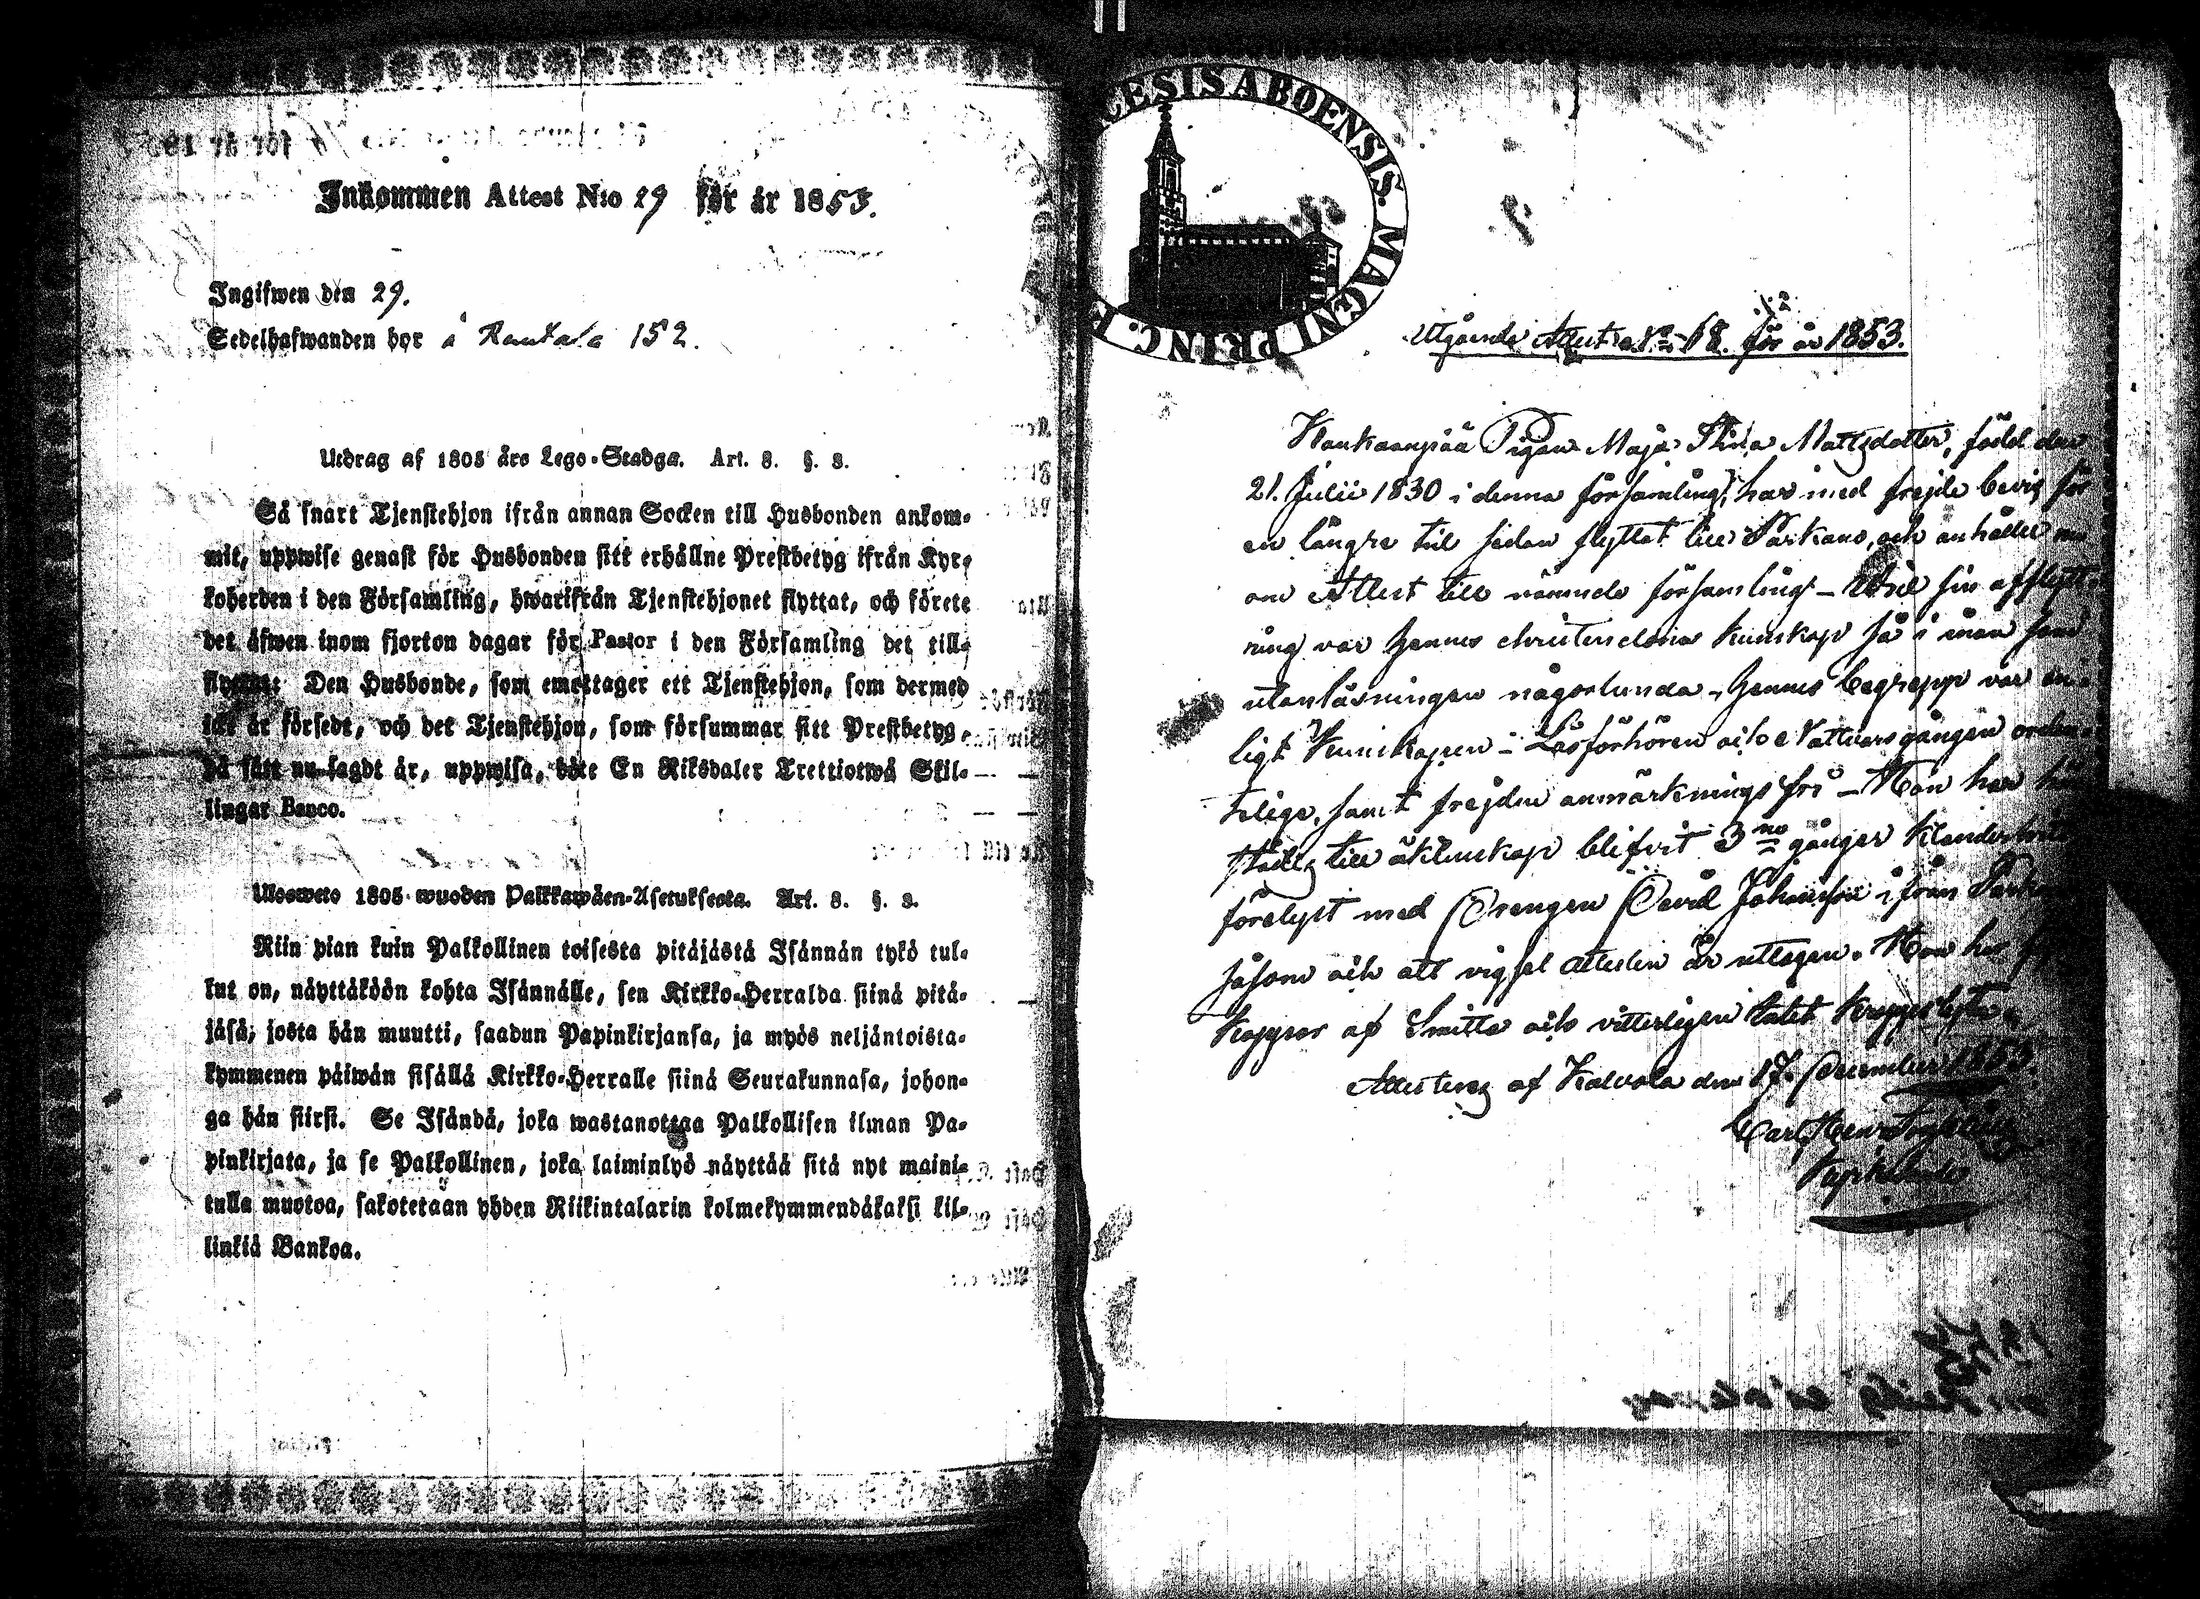 Inkommen Attest N:o 29 för år 1853.
Ingifwen den 29.
Sedelhafwanden bor å Rautala 152.
Utdrag af 1805 års Lego-Stadga. Art. 8. §. 3.
Så snart Tjenstehjon ifrån annan Socken till Husbonden ankom-
mit, uppwise genast för Husbonden sitt erhållne Prestbetyg ifrån Kyr-
koherden i den Församling, hwarifrån Tjenstehjonet flyttat, och förete
det äfwen inom fjorton dagar för Pastor i den Församling det till-
flyttat: Den Husbonde, som emottager ett Tjenstehjon, som dermed
ickt är försedt, och det Tjenstehjon, som försummar sitt Prestbetyg,
på sätt nu sagdt är, uppwisa, böte En Riksdaler Trettiotwå Skil-
lingar Banco.
Ulosweto 1805 wuoden Palkkawäen-Asetuksesta. Art. 8. §. 3.
Niin pian kuin Palkollinen toisesta pitäjästä Isännän tykö tul-
lut on, näyttäköön kohta Isännälle, sen Kirkko-Herralda siinä pitä-
jäsä, josta hän muutti, saadun Papinkirjansa, ja myös neljäntoista-
kymmenen päiwän sisällä Kirkko-Herralle siinä Seurakunnasa, johon-
ga hän siirsi. Se Isändä, joka wastanottaa Palkollisen ilman Pa-
pinkirjata, ja se Palkollinen, joka laiminlyö näyttää sitä nyt maini-
tulla muotoa, sakotetaan yhden Riikintalarin kolmekymmendäkaksi kil-
linkiä Bankoa.
CESIS ABOENSIS. MAGNI PRINC. F
Utgående Attest N:o 18. för år 1853.
Kankaanpää Pigan Maja Stina Mattsdotter, född den
21. Julii 1830 i denna församling, har med frejde bevis för
en längre tid sedan flyttat till Parkano, och anhåller nu
om Attest till nämnde församling - Vid sin afflytt-
ning var hennes christendoms kunskap så i innan som
utanläsningen någorlunda, hennes begrepp var
ligt Kunskapen - Läsförhören och Nattvardsgången orden-
telige, samt frejden anmärknings fri - Hon har
till äktenskap blifvit 3:ne gånger
förelyst med Drengen David Johansson ifrån
såsom och att vigsel Attesten är uttagen. Hon har
Koppor af Smitta och vitterligen
Attesteras af Kalvola den 17. December 1853.
Carl Henr